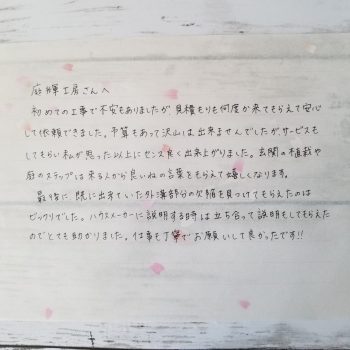 庭輝工房さんへ
初めての工事で不安もありましたが、見積もりも何度か来てもらえて安心
して依頼できました。予算もあって沢山は出来ませんでしたがサービスも
してもらい私が思った以上にセンス良く出来上がりました。玄関の植栽や
庭のステップは来る人から良いねの言葉をもらえて嬉しくなります。
最後に既に出来ていた外溝部分の欠陥を見つけてもらえたのは
ビックリでした。ハウスメーカーに説明する時は立ち合って説明もしてもらえた
のでとても助かりました。仕事も丁寧でお願いして良かったです!!